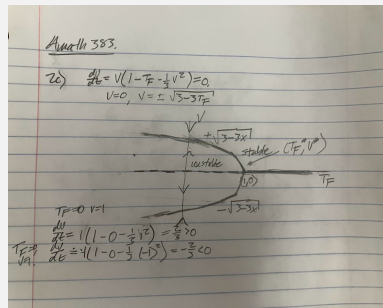 Amath 383.
2c) dv/dt = v(1 - T_F - 1/3 v²) = 0.
v=0, v = ± √(3-3T_F)
v
+√(3-3x)
stable (T_F*, v*)
unstable
(1,0) T_F
-√(3-3x)
T_F=0 v=1
dv/dt = 1(1-0-1/3 v²) = 2/3 > 0
dv/dt = -1(1-0-1/3 (-1)²) = -2/3 < 0